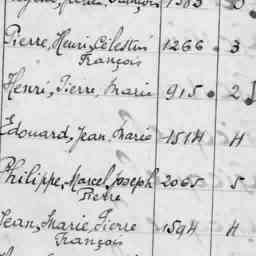 François 1383
Pierre, Henri, Célestin 1266. 3
François
Henri, Pierre, Marie 915. 2
Edouard, Jean, Marie 1514 4
Philippe, Marcel, Joseph 2065 5
Pierre
Jean, Marie, Pierre 1594 4
François